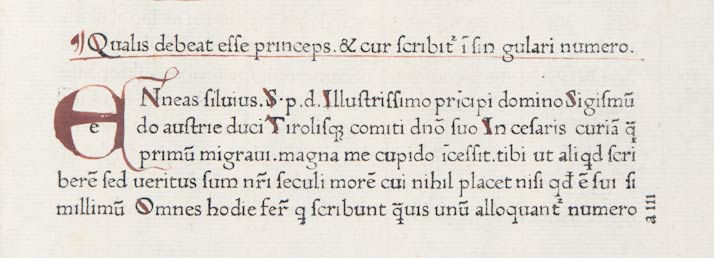 ¶ Qualis debeat esse princeps. & cur scribit᷑ ī sin gulari numero.
ENneas siluius. S. p. d. Illustrissimo prīcipi domino Sigismū
do austrie duci Tirolisq; comiti dn̄o suo In cesaris curiā q̄
primū migraui. magna me cupido īcessit. tibi ut aliqd scri
berē sed ueritus sum nr̄i seculi morē cui nihil placet nisi qd̄ ē sui si
millimū Omnes hodie fer̄ q scribunt q̄uis unū alloquant᷑ numero
a III